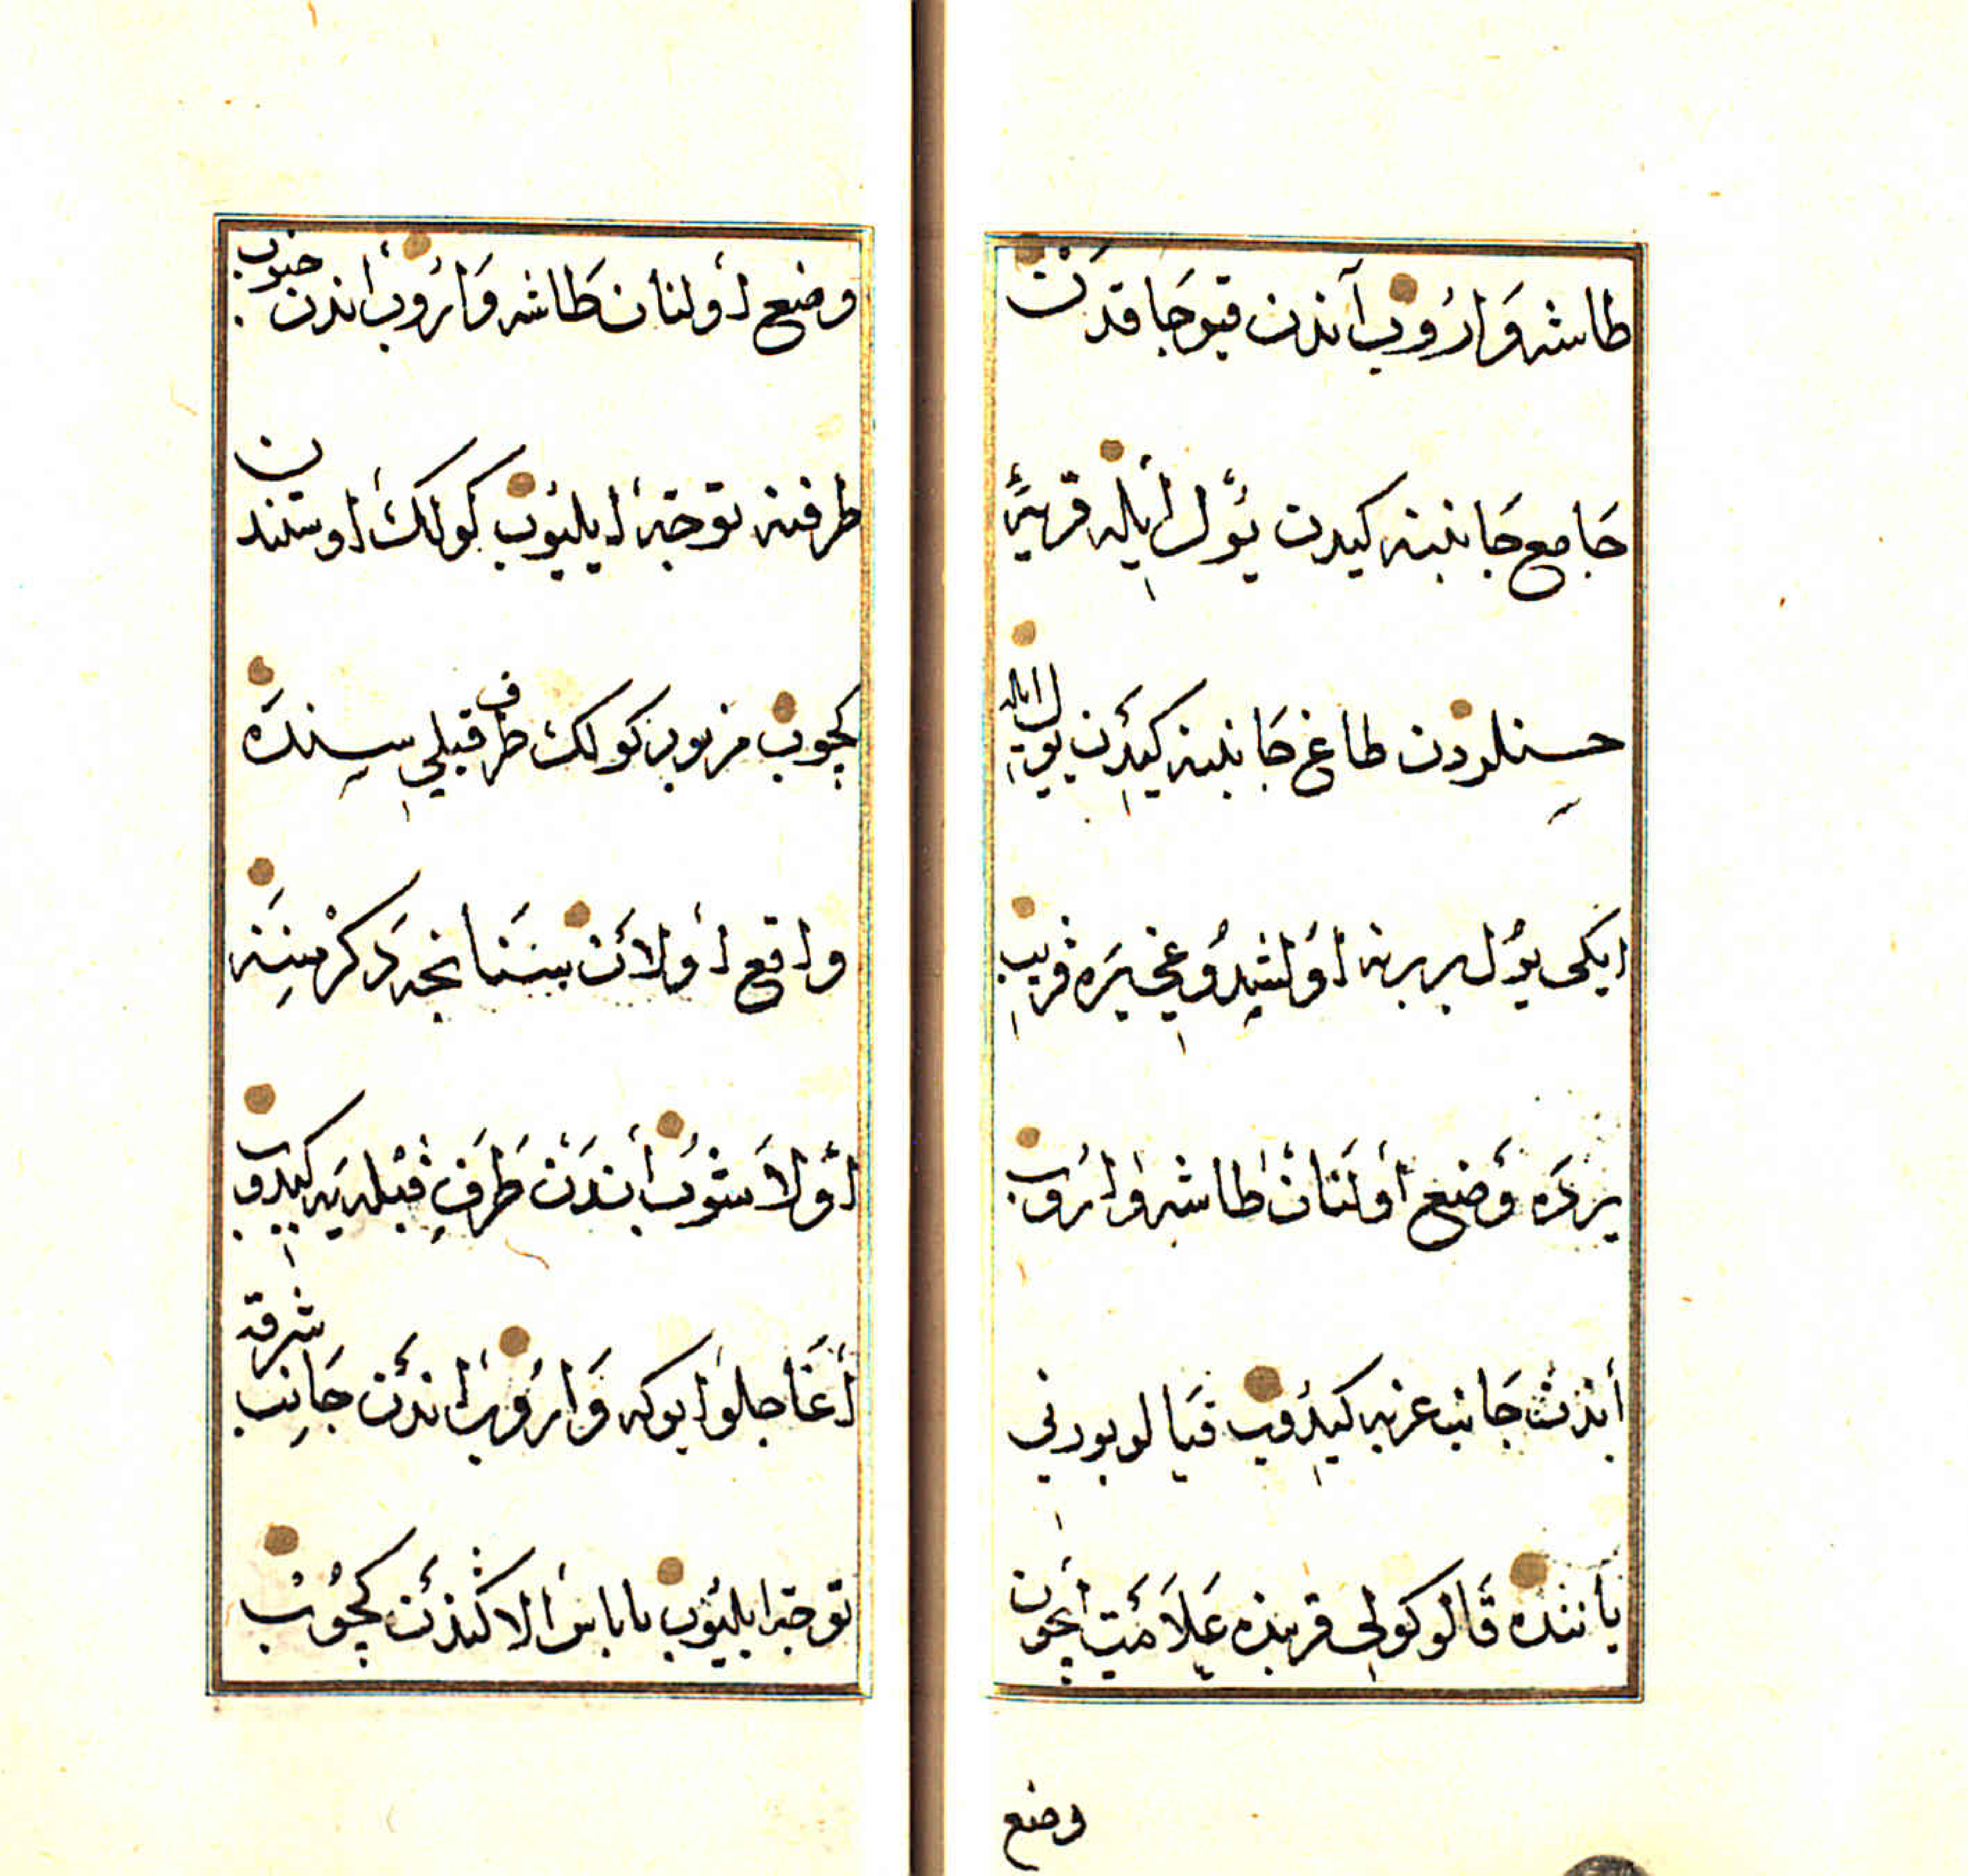 طاشه وَارُوب آندن قیوجَاقدَنْ
جَامع جَانبنه كیدن یُوْل اَیله قریَهٔ
حسنلردن طاغ جَانبنه كیدَن یول ایله
ایكی یوُل بربرنه اوُلشدُوغی یَره قریب
یردَه وَضع أولَنَانْ طاشه وارُوب
أندَنْ جَانب غربه كیدُوب قیالو بورنی
یَاننده قَالو كولی قربنده عَلَامَت اَیچون
وضع
وضع أولنان طَاشه وَارُوب أندن جنوب
طرفنه توجّه أیلیوُب كولك اوستندن
كچوب مزبور كولك طرف قبلی سِندَه
واقع أولَانْ بینَنَا نجه دَكرْمِنِنَه
أولَاشوُب أندَنْ طَرَفِ قبْلهیَه كیدوب
أغَاجلو ایوكه وَارُوب اندَن جَانِب شرقه
توجّه ایلیوُب باباس الاكندَن كچوُب